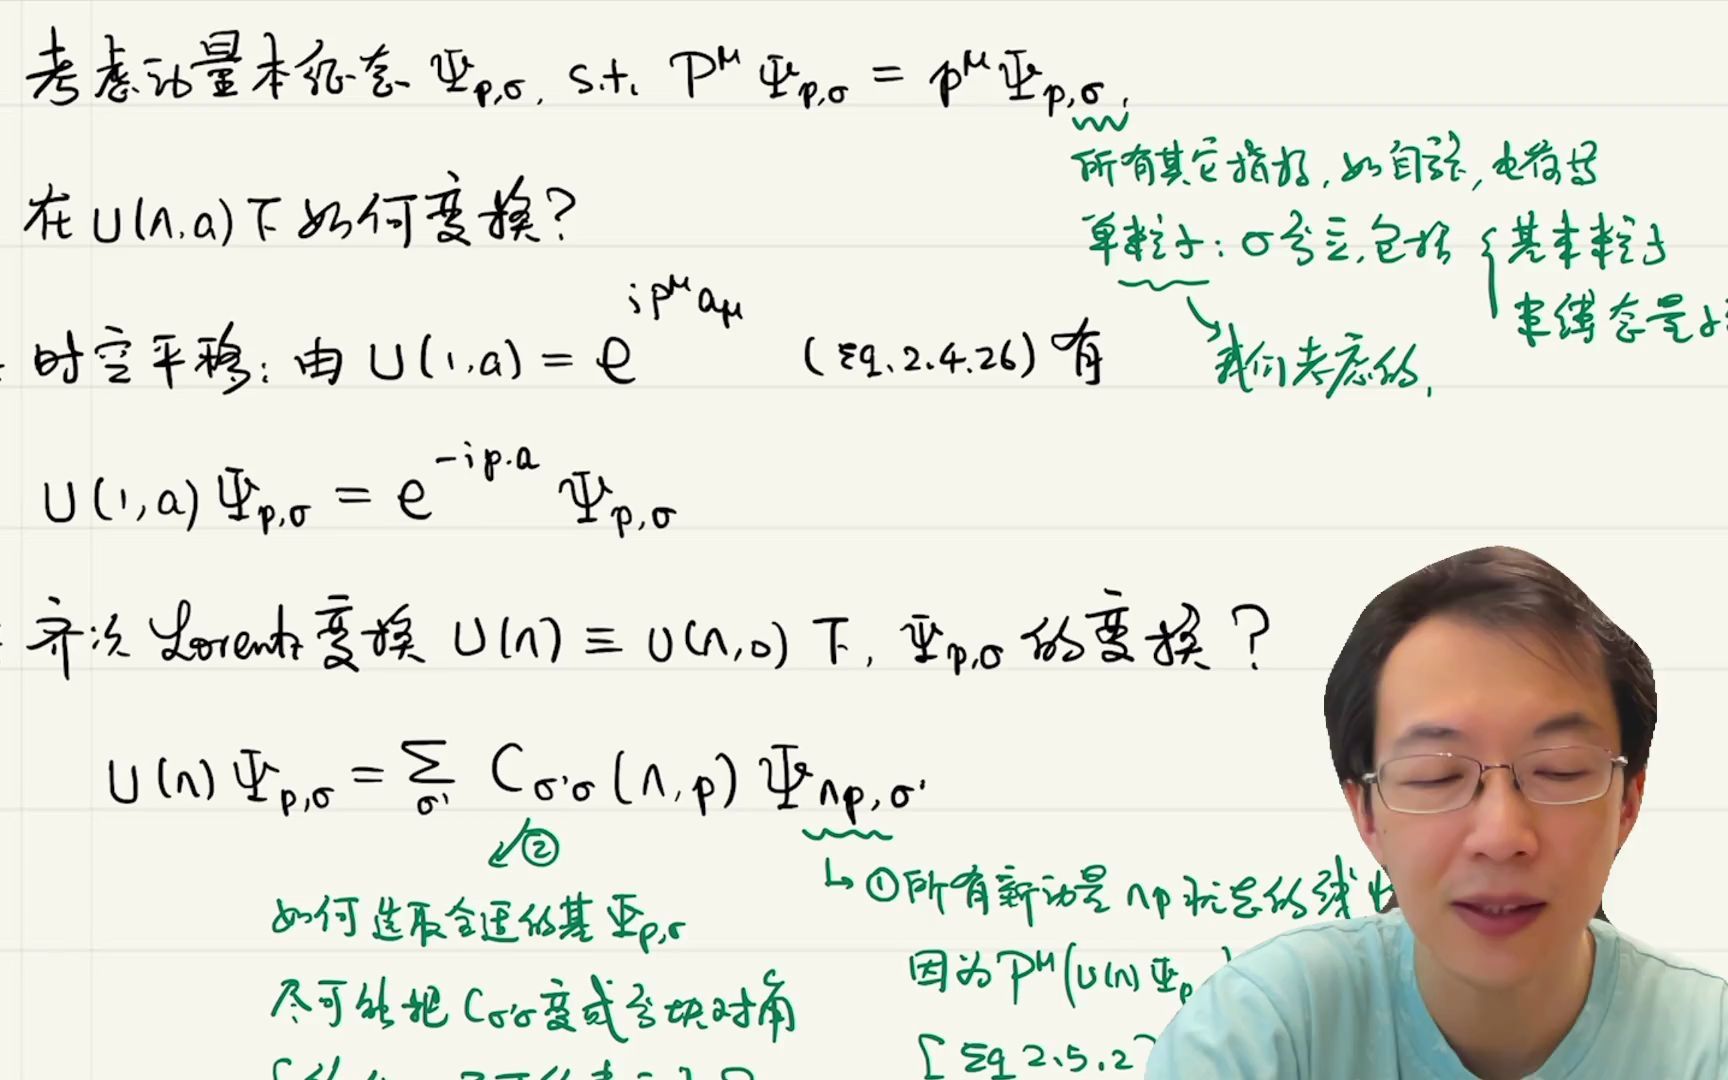 考虑动量本征态 Ψ_{p,σ}, s.t. P^μ Ψ_{p,σ} = p^μ Ψ_{p,σ},
所有其它指标, 如自旋, 电荷等
在 U(Λ,a) 下如何变换?
单粒子: σ分立, 包括 { 基本粒子
束缚态
我们考虑的,
时空平移: 由 U(1,a) = e^{iP^μ a_μ} (Eq. 2.4.26) 有
U(1,a) Ψ_{p,σ} = e^{-ip·a} Ψ_{p,σ}
齐次 Lorentz 变换 U(Λ) ≡ U(Λ,0) 下, Ψ_{p,σ} 的变换?
U(Λ) Ψ_{p,σ} = Σ_{σ'} C_{σ'σ}(Λ,p) Ψ_{Λp,σ'}
②
如何选取合适的基 Ψ_{p,σ}
尽可能把 C_{σ'σ} 变成分块对角
↳ ① 所有新动量 Λp 状态的线
因为 P^μ(U(Λ) Ψ_p
[Eq 2.5.2]